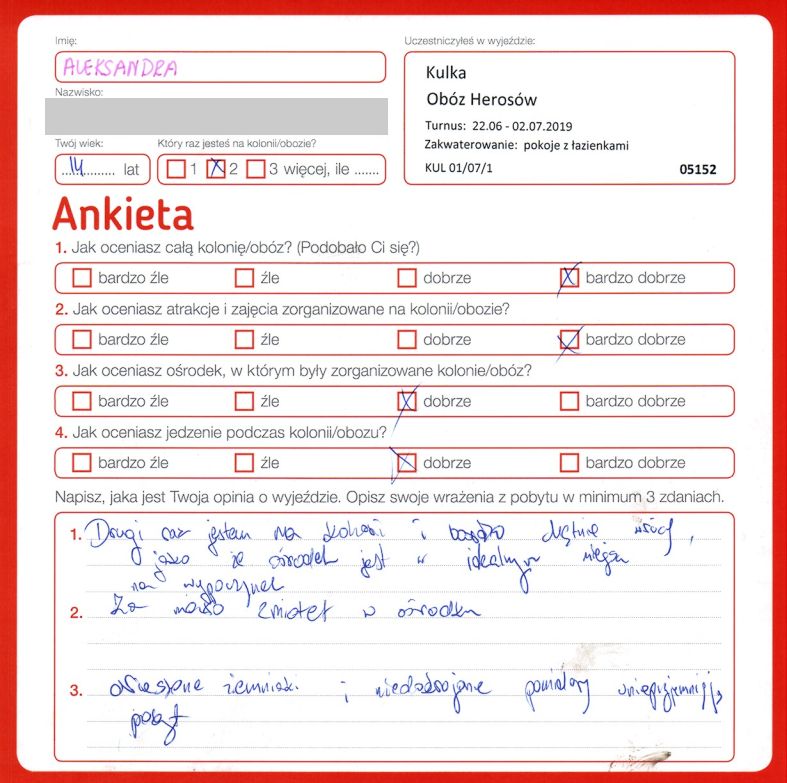 Imię:
ALEKSANDRA
Nazwisko:
Twój wiek:
14 lat
Który raz jesteś na kolonii/obozie?
1 2 3 więcej, ile .......
Uczestniczyłeś w wyjeździe:
Kulka
Obóz Herosów
Turnus: 22.06 - 02.07.2019
Zakwaterowanie: pokoje z łazienkami
KUL 01/07/1 05152
Ankieta
1. Jak oceniasz całą kolonię/obóz? (Podobało Ci się?)
bardzo źle źle dobrze bardzo dobrze
2. Jak oceniasz atrakcje i zajęcia zorganizowane na kolonii/obozie?
bardzo źle źle dobrze bardzo dobrze
3. Jak oceniasz ośrodek, w którym były zorganizowane kolonie/obóz?
bardzo źle źle dobrze bardzo dobrze
4. Jak oceniasz jedzenie podczas kolonii/obozu?
bardzo źle źle dobrze bardzo dobrze
Napisz, jaka jest Twoja opinia o wyjeździe. Opisz swoje wrażenia z pobytu w minimum 3 zdaniach.
1. Drugi raz jestem na kolonii i bardzo chętnie wrócę,
jako że ośrodek jest w idealnym miejscu
na wypoczynek
2. Za mało w ośrodku
3. ziemniaki i niedojrzałe pomidory
pobyt